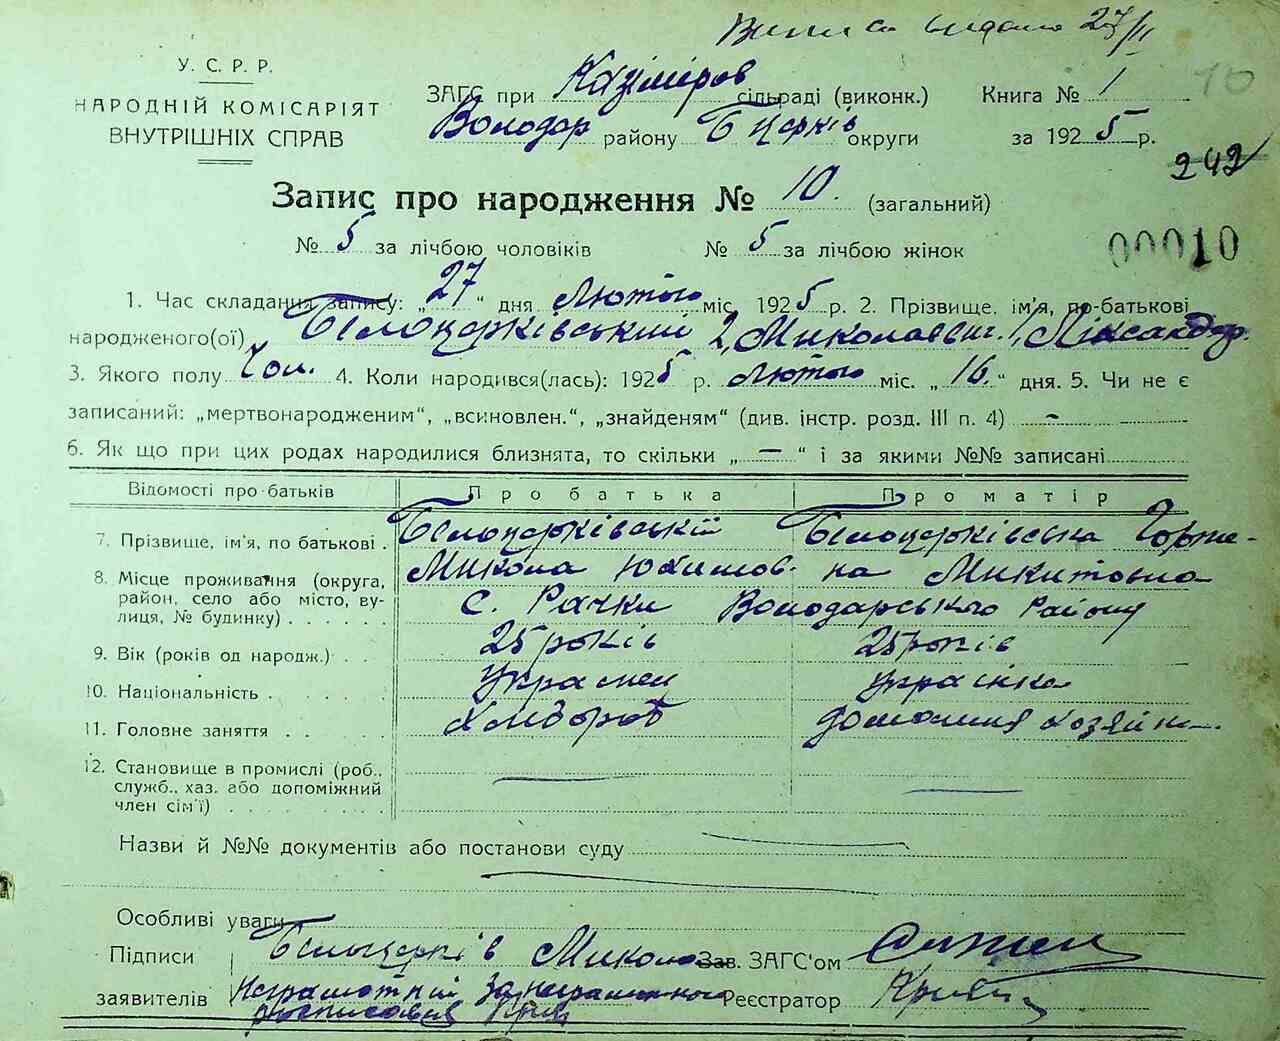 Випись видано 27/II
У. С. Р. Р.
НАРОДНІЙ КОМІСАРІЯТ
ВНУТРІШНІХ СПРАВ
ЗАГС при Казіміров сільраді (виконк.) Книга № 1 10
Володар району Б Церків округи за 1925 р.
242
Запис про народження № 10. (загальний)
№ 5 за лічбою чоловіків № 5 за лічбою жінок
00010
1. Час складання запису: „27“ дня Лютого міс. 1925 р. 2. Прізвище, ім'я, по-батькові
народженого(ої) Білоцерківський 2, Миколаєвич 1, Ліксандр
3. Якого полу Чол. 4. Коли народився(лась): 1925 р. лютого міс. „16.“ дня. 5. Чи не є
записаний: „мертвонародженим“, „всиновлен.“, „знайденям“ (див. інстр. розд. III п. 4) –
6. Як що при цих родах народилися близнята, то скільки „—“ і за якими №№ записані
Відомості про батьків Про батька Про матір
7. Прізвище, ім'я, по батькові . Білоцерківській Білоцерківська Горпи-
Микола Юхимов. на Микитовна
8. Місце проживання (округа,
район, село або місто, ву-
лиця, № будинку) . . . . . с. Рачки Володарського Району
9. Вік (років од народж.) . . 25 років 25 років
10. Національність . . . . . Украінец українка
11. Головне заняття . . Хлібороб домашня хозяйн
12. Становище в промислі (роб.,
служб., хаз. або допоміжний
член сім'ї) . . . . . . . . —— ——
Назви й №№ документів або постанови суду
Особливі уваги
Підписи Білоцерків Микола Зав. ЗАГС'ом
заявителів Неграмотний За неграмотного Реєстратор
росписався